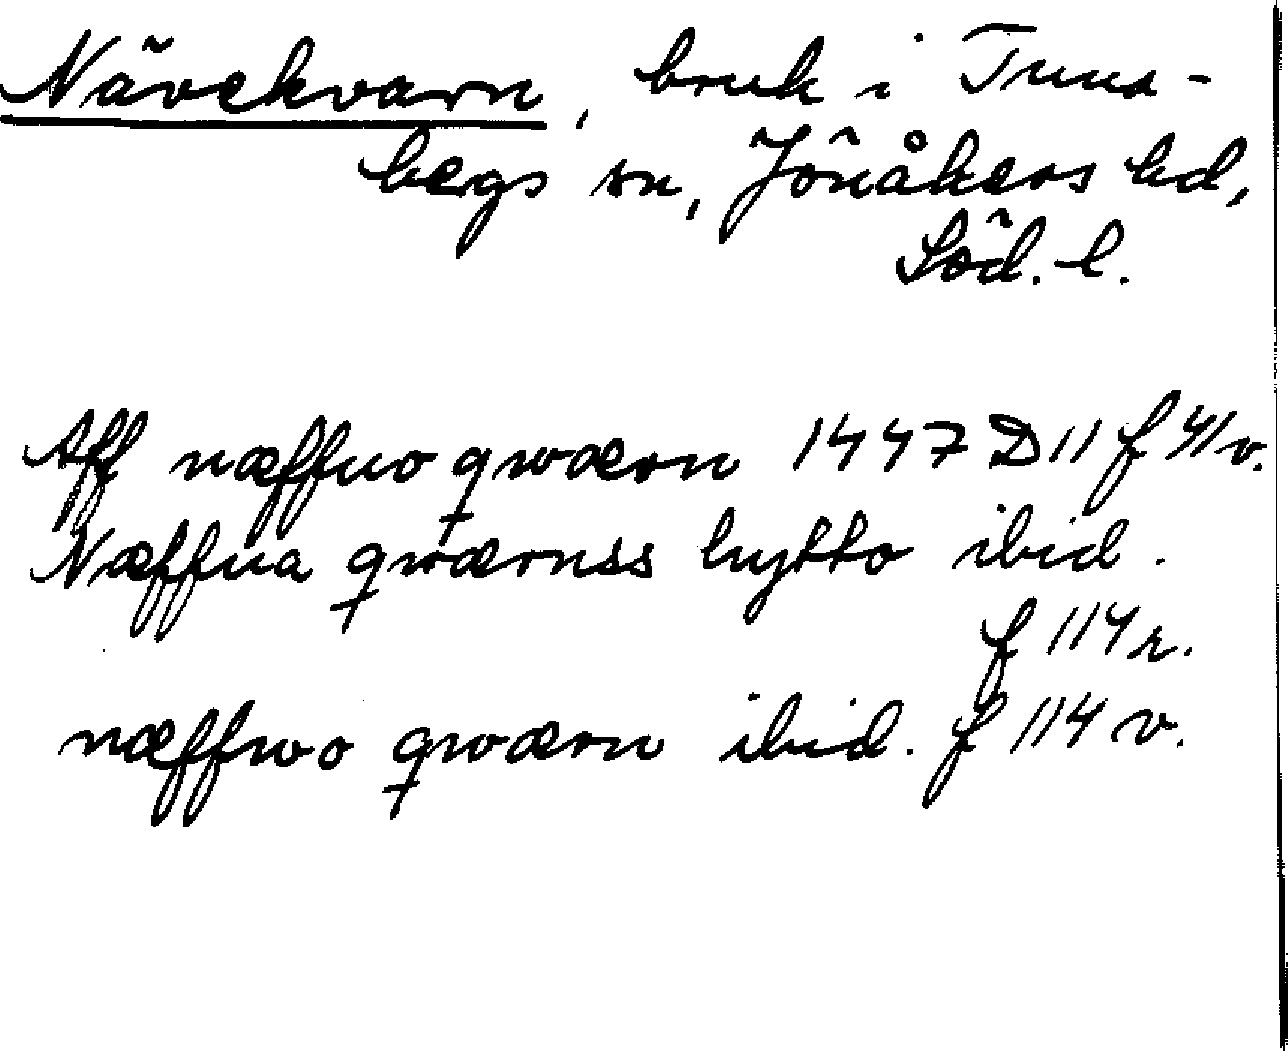 Nävekvarn, bruk i Tuna-
bergs sn, Jönåkers hd,
Söd. l.
Aff næffuo qwærn 1447 D 11 f 41 v.
Næffua qwærnss hytto ibid.
f 114 r.
næffwo qwærn ibid. f 114 v.